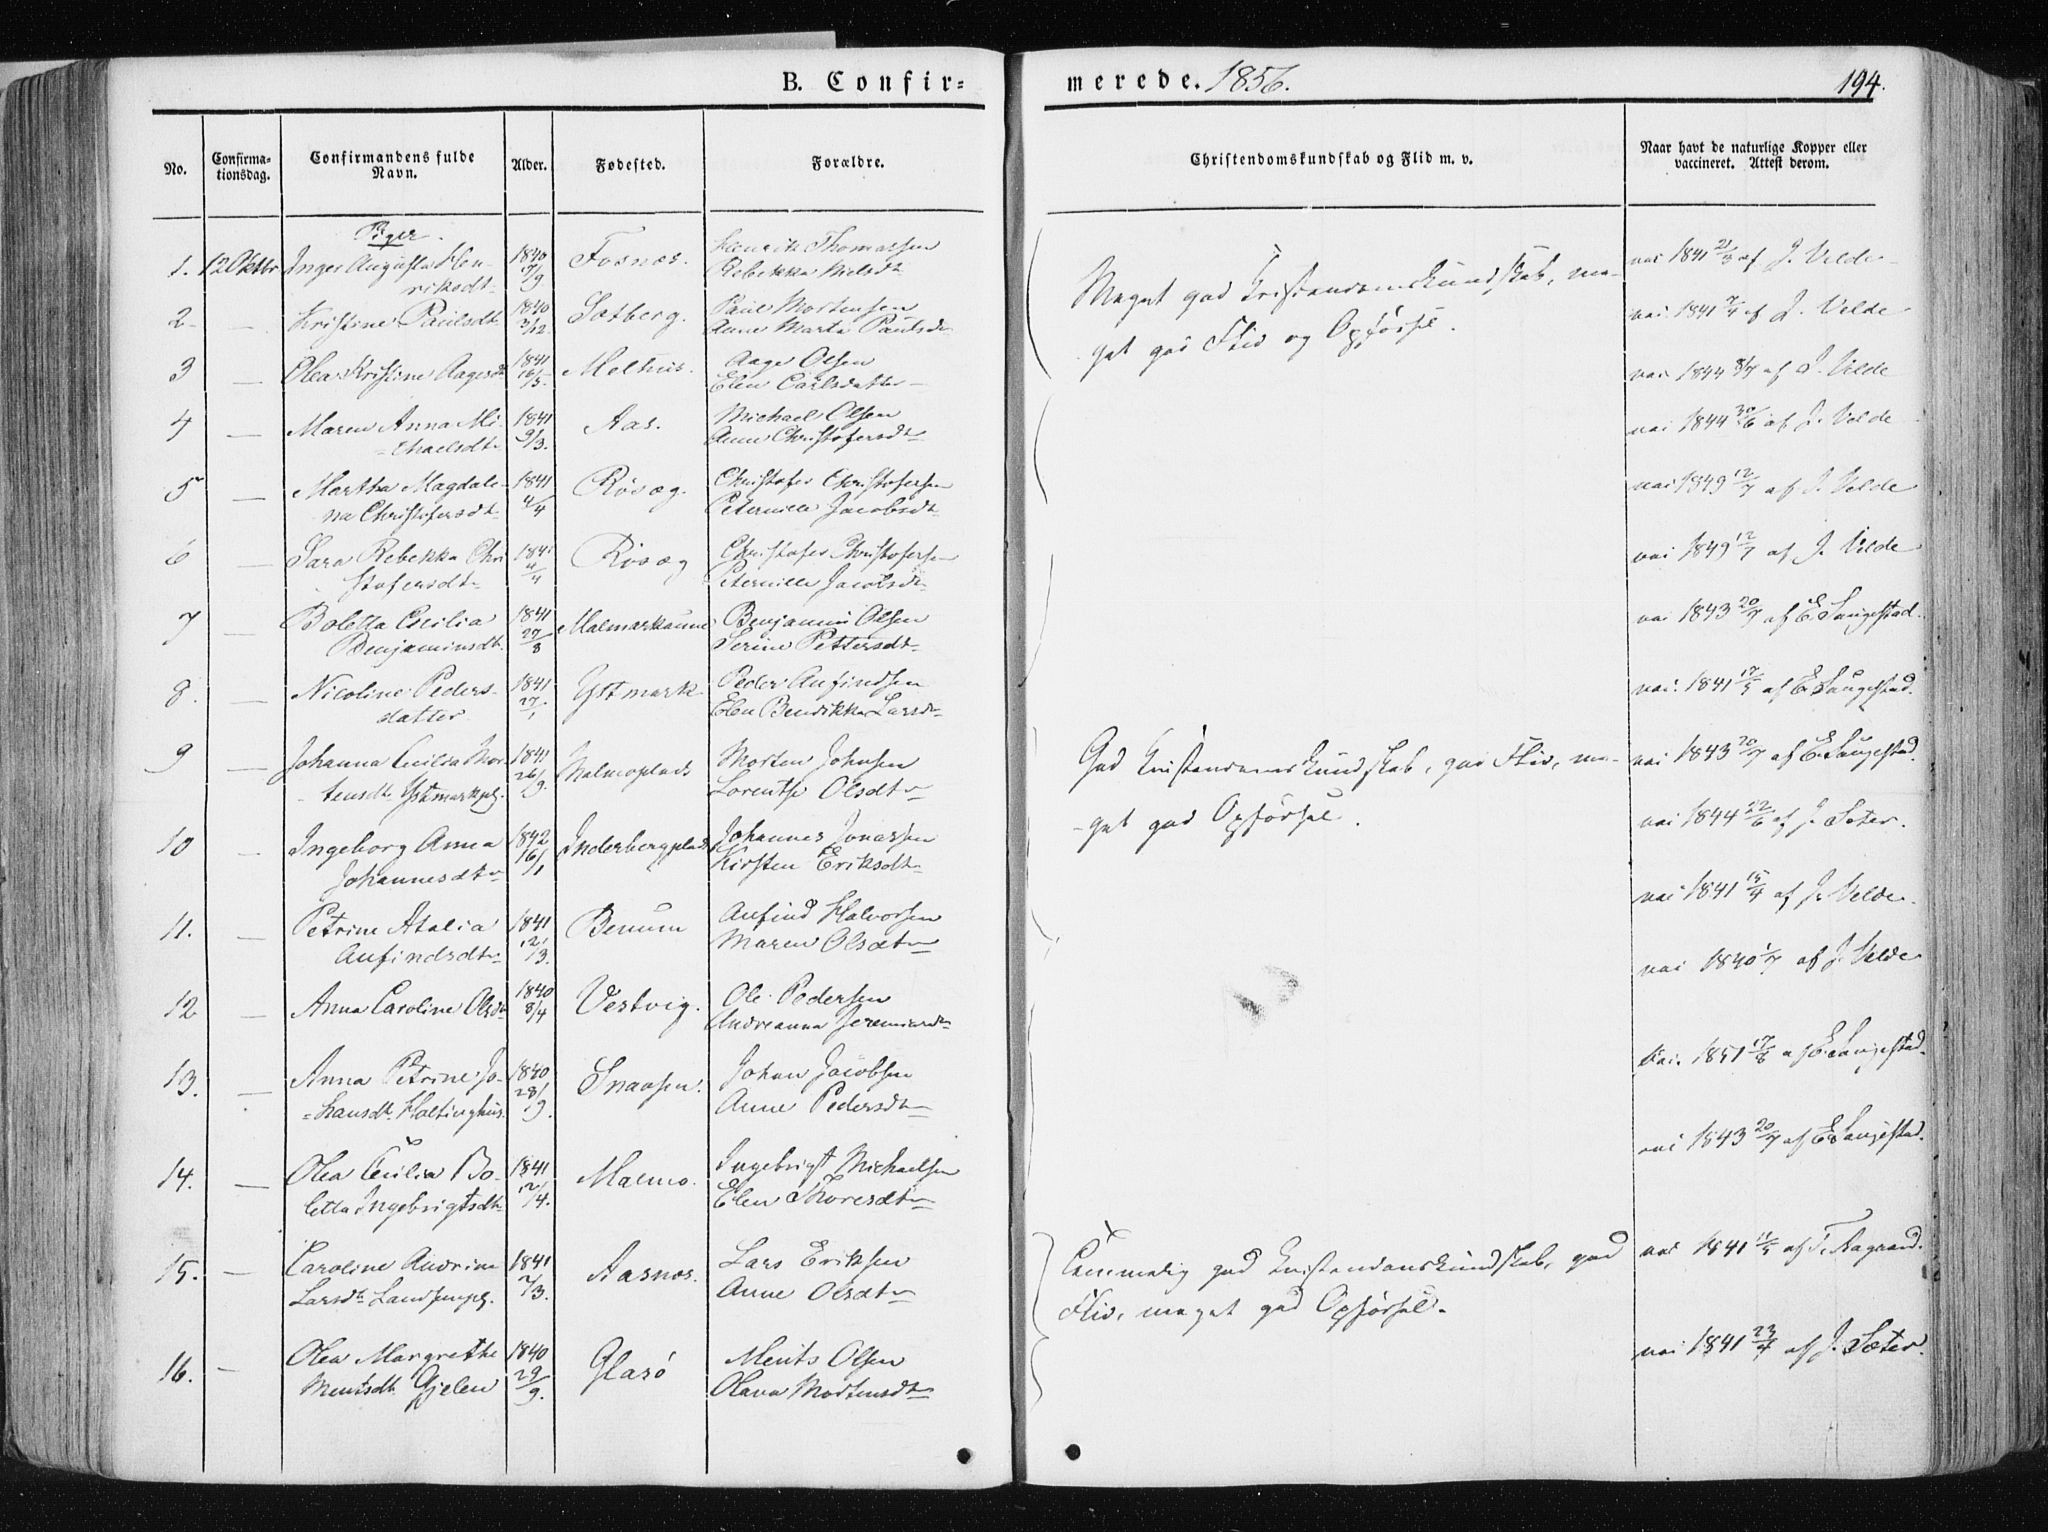 B. Confir-
merede. 1856.
194.
No.
Confirma-
tionsdag.
Confirmandens fulde
Navn.
Alder.
Fødested.
Forældre.
Christendomskundskab og Flid m. v.
Naar havt de naturlige Kopper eller
vaccineret. Attest derom.
Piger.
1. 12 Oktbr Inger Augusta Hen-
riksdt 1840 7/9 Fosnæs. Henrik Thomassen
Rebekka Nielsdt
vai 1841 21/3 af J. Velde
2 — Kristine Paulsdt 1840 3/12 Solberg. Paul Mortensen
Anne Marta Paulsdt
vai 1841 7/4 af J. Velde
Meget god Kristendomskundskab, me-
get god Flid og Opførsel.
3 — Olea Kristine Aagesdt 1841 16/5 Melhus. Aage Olsen
Elen Carlsdatter
vai 1844 8/7 af J. Velde
4 — Maren Anna Mi-
chaelsdt 1841 9/3. Aas. Michael Olsen
Anne Christofersdt
vai 1844 30/6 af J. Velde
5 — Martha Magdale-
na Christofersdt 1841 4/4 Røsæg. Christofer Christofersen
Peternille Jacobsdt
vai 1849 12/7 af J. Velde
6 — Sara Rebekka Chri
stofersdt 1841 4/4 Røsæg Christofer Christofersen
Peternille Jacobsdt
vai 1849 12/7 af J. Velde
7 — Boletta Cecilia
Benjaminsdt 1841 27/8 Malmarkaune Benjamin Olsen
Serine Pettersdt
vai 1843 20/7 af E. Saugestad.
8. — Nicoline Peders-
datter 1841 27/1 Ystmark Peder Anfindsen
Elen Bendikka Larsdt
vai. 1841 17/5 af E. Saugestad.
9 — Johanna Cecilia Mor-
tensdt Ystmarkpl. 1841 26/9. Malmoplads Morten Johnsen
Lorentse Olsdt
vai 1843 20/7 af E. Saugestad.
God Kristendomskundskab, god Flid, me-
get god Opførsel.
10 — Ingeborg Anna
Johannesdt 1842 16/1 Inderbergplads Johannes Jonassen
Kirsten Eriksdt
vai 1844 22/6 af J. Seter.
11. — Petrine Atalia
Anfindsdt 1841 12/3. Benum Anfind Halvorsen
Maren Olsdt
vai 1841 15/4 af J. Velde.
12 — Anna Caroline Olsdt 1840 8/4 Vestvig. Ole Pedersen
Andreanna Jeremiasdt
vai 1840 1/7 af J. Velde
13. — Anna Petrine Jo-
hansdt Holtinghus. 1840 28/9. Snaasen. Johan Jacobsen
Anne Pedersdt
vai. 1851 17/8 af E. Saugestad.
14. — Olea Cecilia Bo-
letta Ingebrigtsdt 1841 12/4. Malmo. Ingebrigt Michaelsen
Elen Thoresdt
vai 1843 20/7 af E. Saugestad.
15. — Caroline Andrine
Larsdt Landsempl. 1841 7/3. Aasnes. Lars Eriksen
Anne Olsdt
vai 1841 12/5 af T. Aagaard.
Temmelig god Kristendomskundskab, god
Flid, meget god Opførsel.
16. — Olea Margrethe
Mentsdt. Gjelen 1840 29/9. Glasø Ments Olsen
Olava Mortensdt
vai 1841 23/7 af J. Sæter.